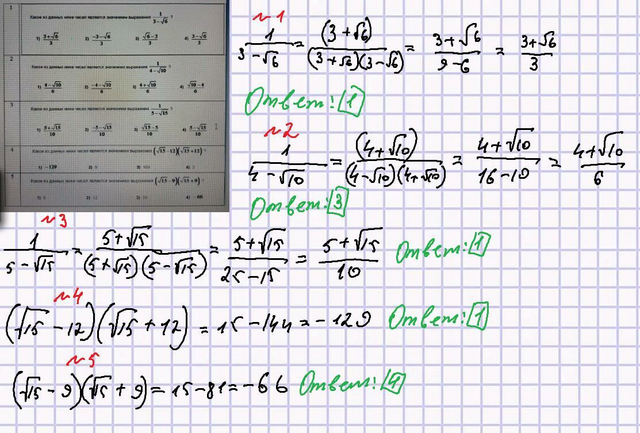 1
Какое из данных ниже чисел является значением выражения 1/(3−√6) ?
1) (3+√6)/3
4) (3−√6)/3
2
Какое из данных ниже чисел является значением выражения 1/(4−√10) ?
1) (4−√10)/6
2) (−4−√10)/6
3) (4+√10)/6
4) (√10−4)/6
3
Какое из данных ниже чисел является значением выражения 1/(5−√15) ?
1) (5+√15)/10
3) (√15−5)/10
4) (5−√15)/10
4
Какое из данных ниже чисел является значением выражения (√15−12)(√15+12) ?
1) −129
Какое из данных ниже чисел является значением выражения (√15−9)(√15+9) ?
4) −66
№1
1/(3−√6) = (3+√6)/((3+√6)(3−√6)) = (3+√6)/(9−6) = (3+√6)/3
Ответ: 1
№2
1/(4−√10) = (4+√10)/((4−√10)(4+√10)) = (4+√10)/(16−10) = (4+√10)/6
Ответ: 3
№3
1/(5−√15) = (5+√15)/((5+√15)(5−√15)) = (5+√15)/(25−15) = (5+√15)/10 Ответ: 1
№4
(√15−12)(√15+12) = 15−144 = −129 Ответ: 1
№5
(√15−9)(√15+9) = 15−81 = −66 Ответ: 4